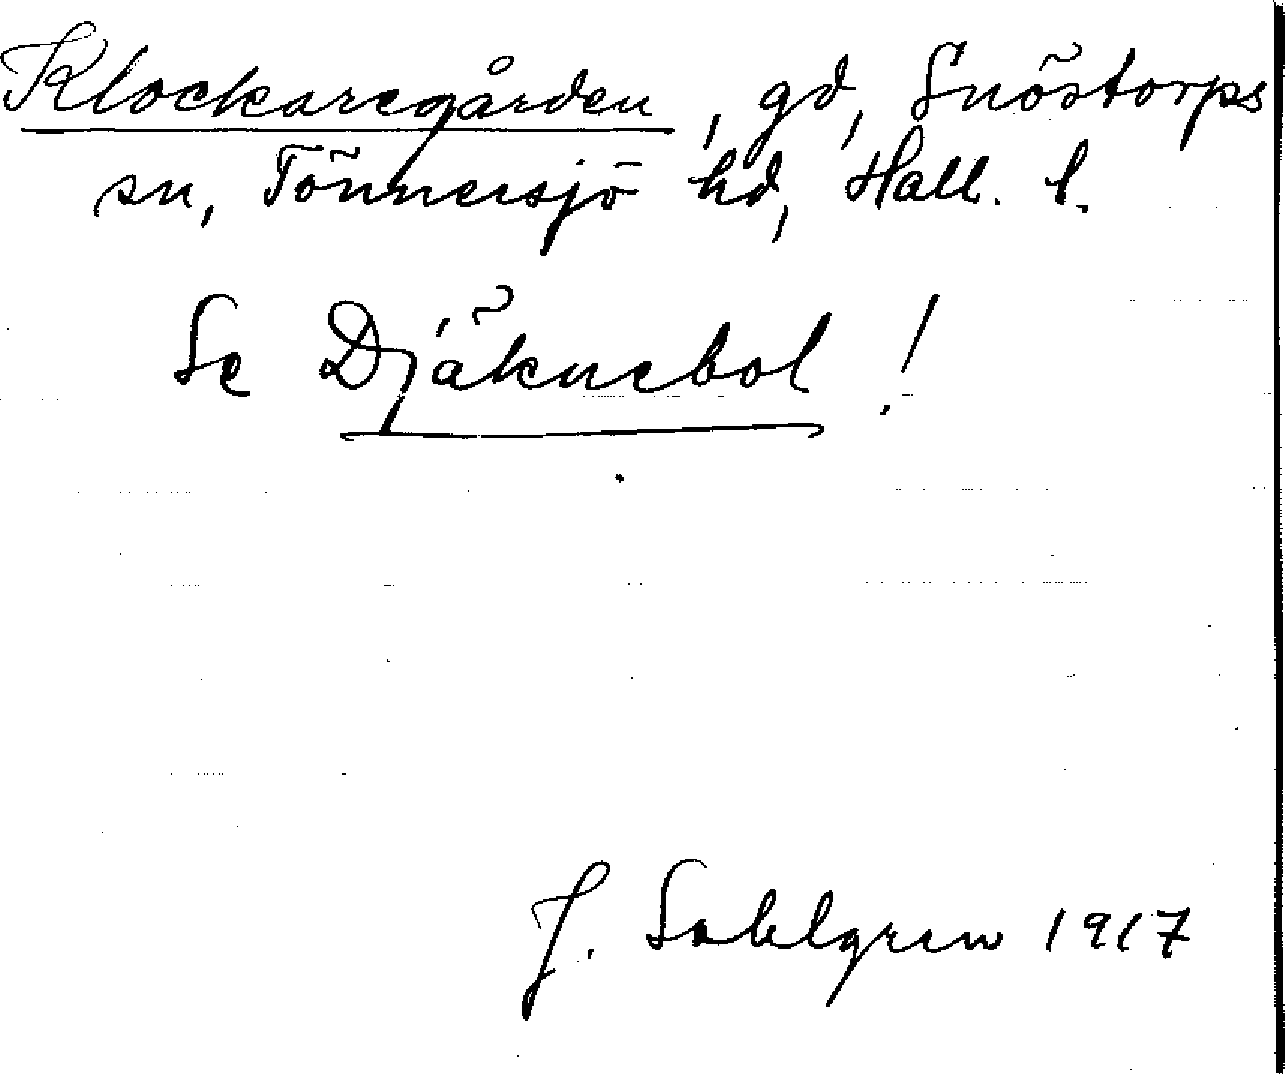 Klockaregården, gd, Snöstorps
sn, Tönnersjö hd, Hall. l.
Se Djäknebol!
J. Sahlgren 1917